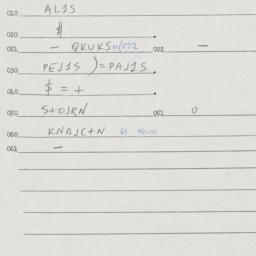 010 ALIS
$
020
021 — QKUKS 022 —
030 PEJIS )= PAJIS
040 $ = +
050 S+OJRN 051 0
060 KNAJC+N
061 —